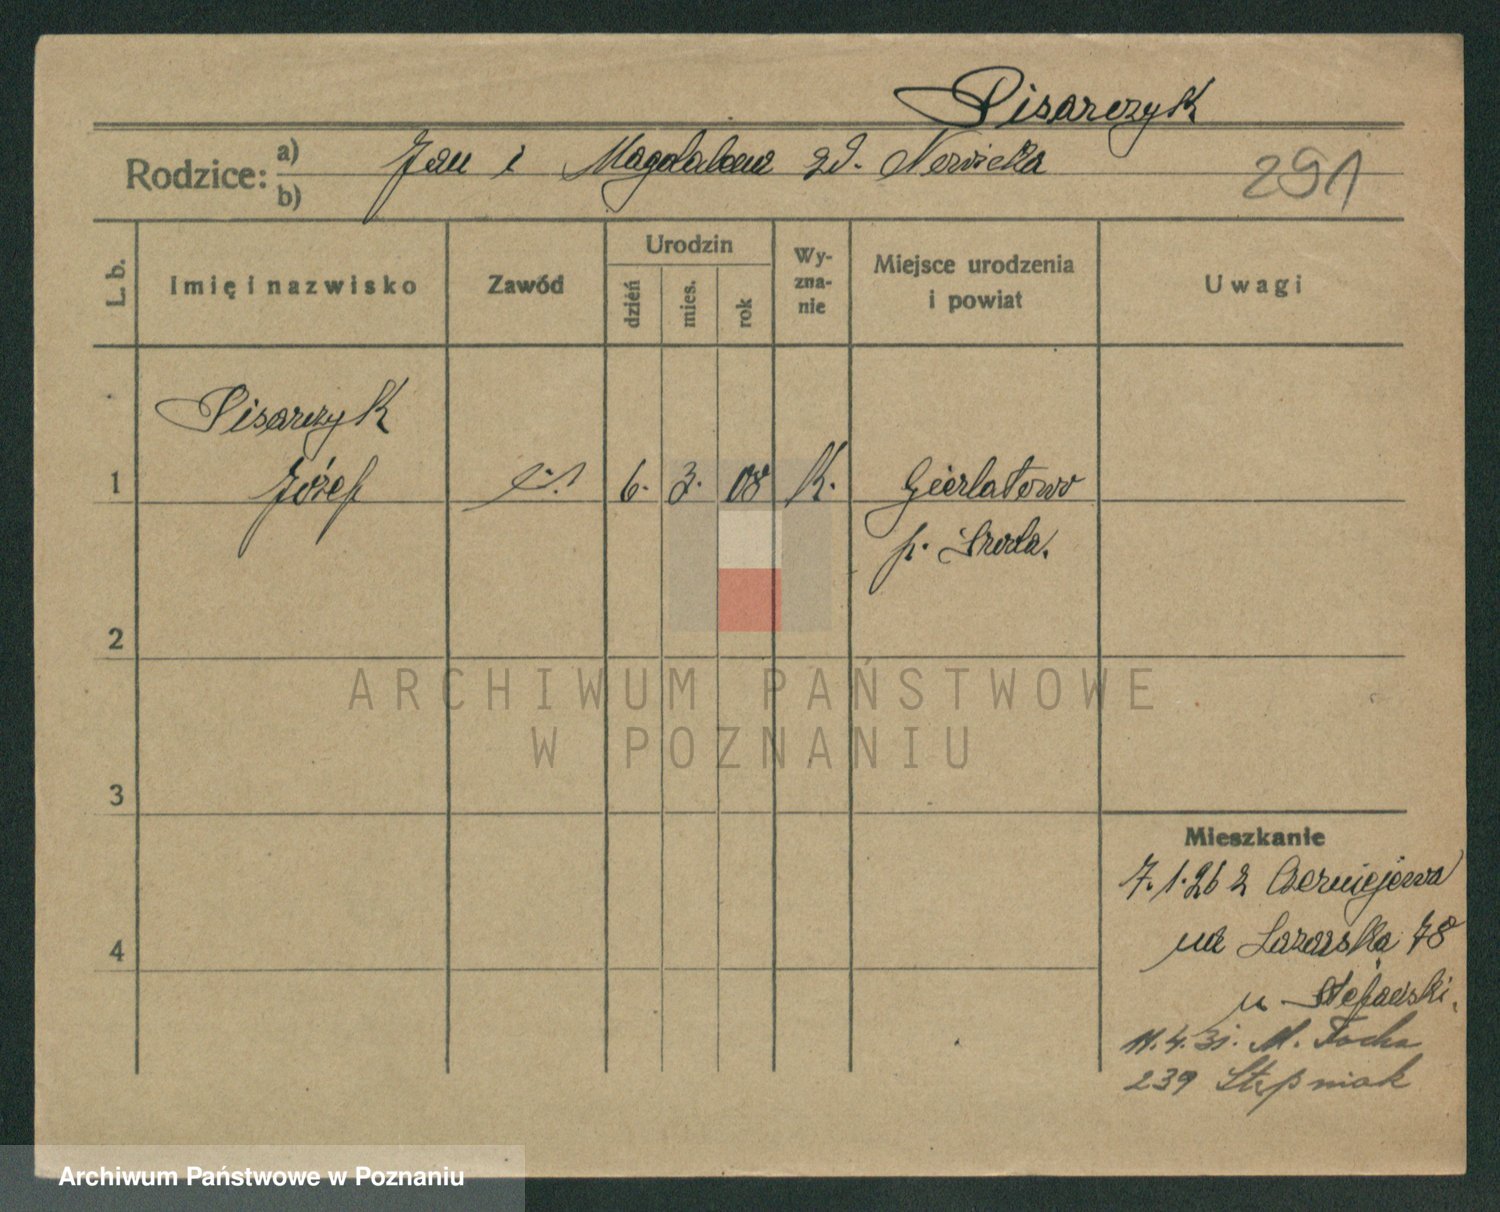 Pisarczyk
Rodzice: a) b) Jan i Magdalena zd. Nowicka
291
L. b. Imię i nazwisko Zawód Urodzin dzień mies. rok Wyznanie Miejsce urodzenia i powiat Uwagi
Pisarczyk
1 Józef 6. 3. 08 K. Gierlatowo
p. Środa.
2
ARCHIWUM PAŃSTWOWE
W POZNANIU
3
Mieszkanie
7.1.26 z Czerniejewa
4 na Łazarska 78
u Stefański.
11.4.31. M. Focha
239 Stępniak
Archiwum Państwowe w Poznaniu